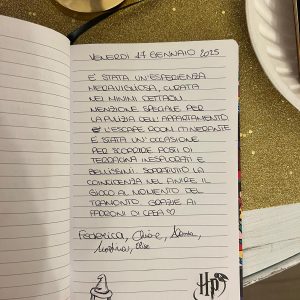 VENERDI 17 GENNAIO 2025
E' STATA UN'ESPERIENZA
MERAVIGLIOSA, CURATA
NEI MINIMI DETTAGLI
MENZIONE SPECIALE PER
LA PULIZIA DELL'APPARTAMENTO
E L'ESCAPE ROOM ITINERANTE
E' STATA UN'OCCASIONE
PER SCOPRIRE POSTI DI
TERRACINA INESPLORATI E
BELLISSIMI. SOPRATTUTTO LA
COINCIDENZA NEL FINIRE IL
GIOCO AL MOMENTO DEL
TRAMONTO. GRAZIE AI
PADRONI DI CASA ♡
Federica, Chiara,
HP